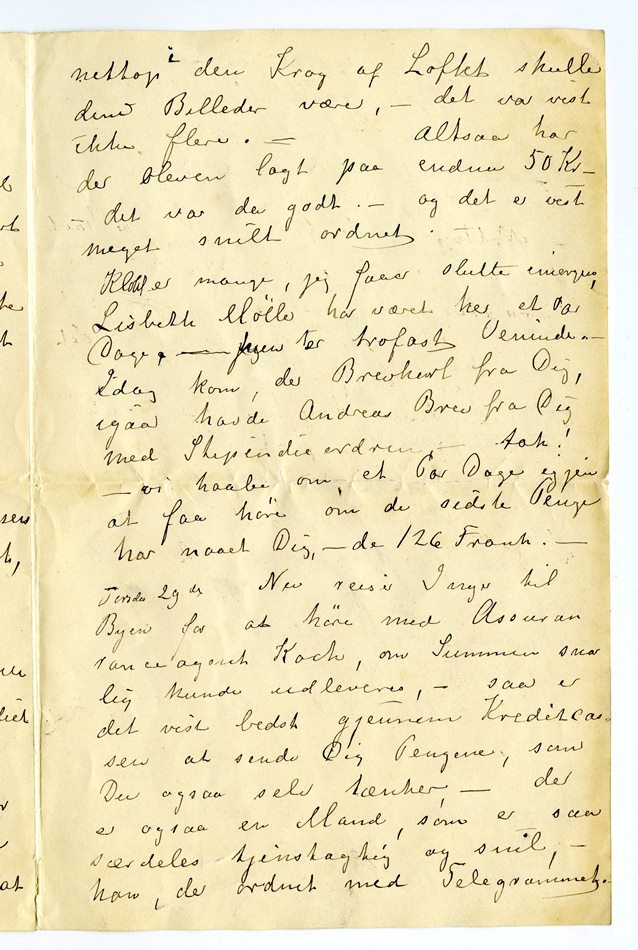 nettop i den Krog af Loftet skulle
dine Billeder være, — det var vist
ikke flere. — Altsaa har
der bleven lagt paa endnu 50 Kr —
— det var da godt. — og det er vist
meget snilt ordnet.
Klok er mange, jeg faar slutte imorgen,
Lisbeth Mölle har været her et Par
Dage, — hun er trofast Veninde. —
Idag kom, de Brevkort fra Dig,
igaar havde Andreas Brev fra Dig
med Stipendieordren, — tak!
— vi haabe om et Par Dage igjen
at faa höre om de sidste Penge
har naaet Dig, — de 126 Frank. —
Torsdag 29de Nu reise Inge til
Byen for at höre med Assuran
ranceagent Koch, om Summen snar
lig kunde udleveres, — saa er
det vist bedst gjennem Kreditcas-
sen at sende Dig Pengene, som
Du ogsaa selv tænker, — der
er ogsaa en Mand, som er saa
særdeles tjenstagtig og snil, —
han, de ordnet med Telegrammet. —